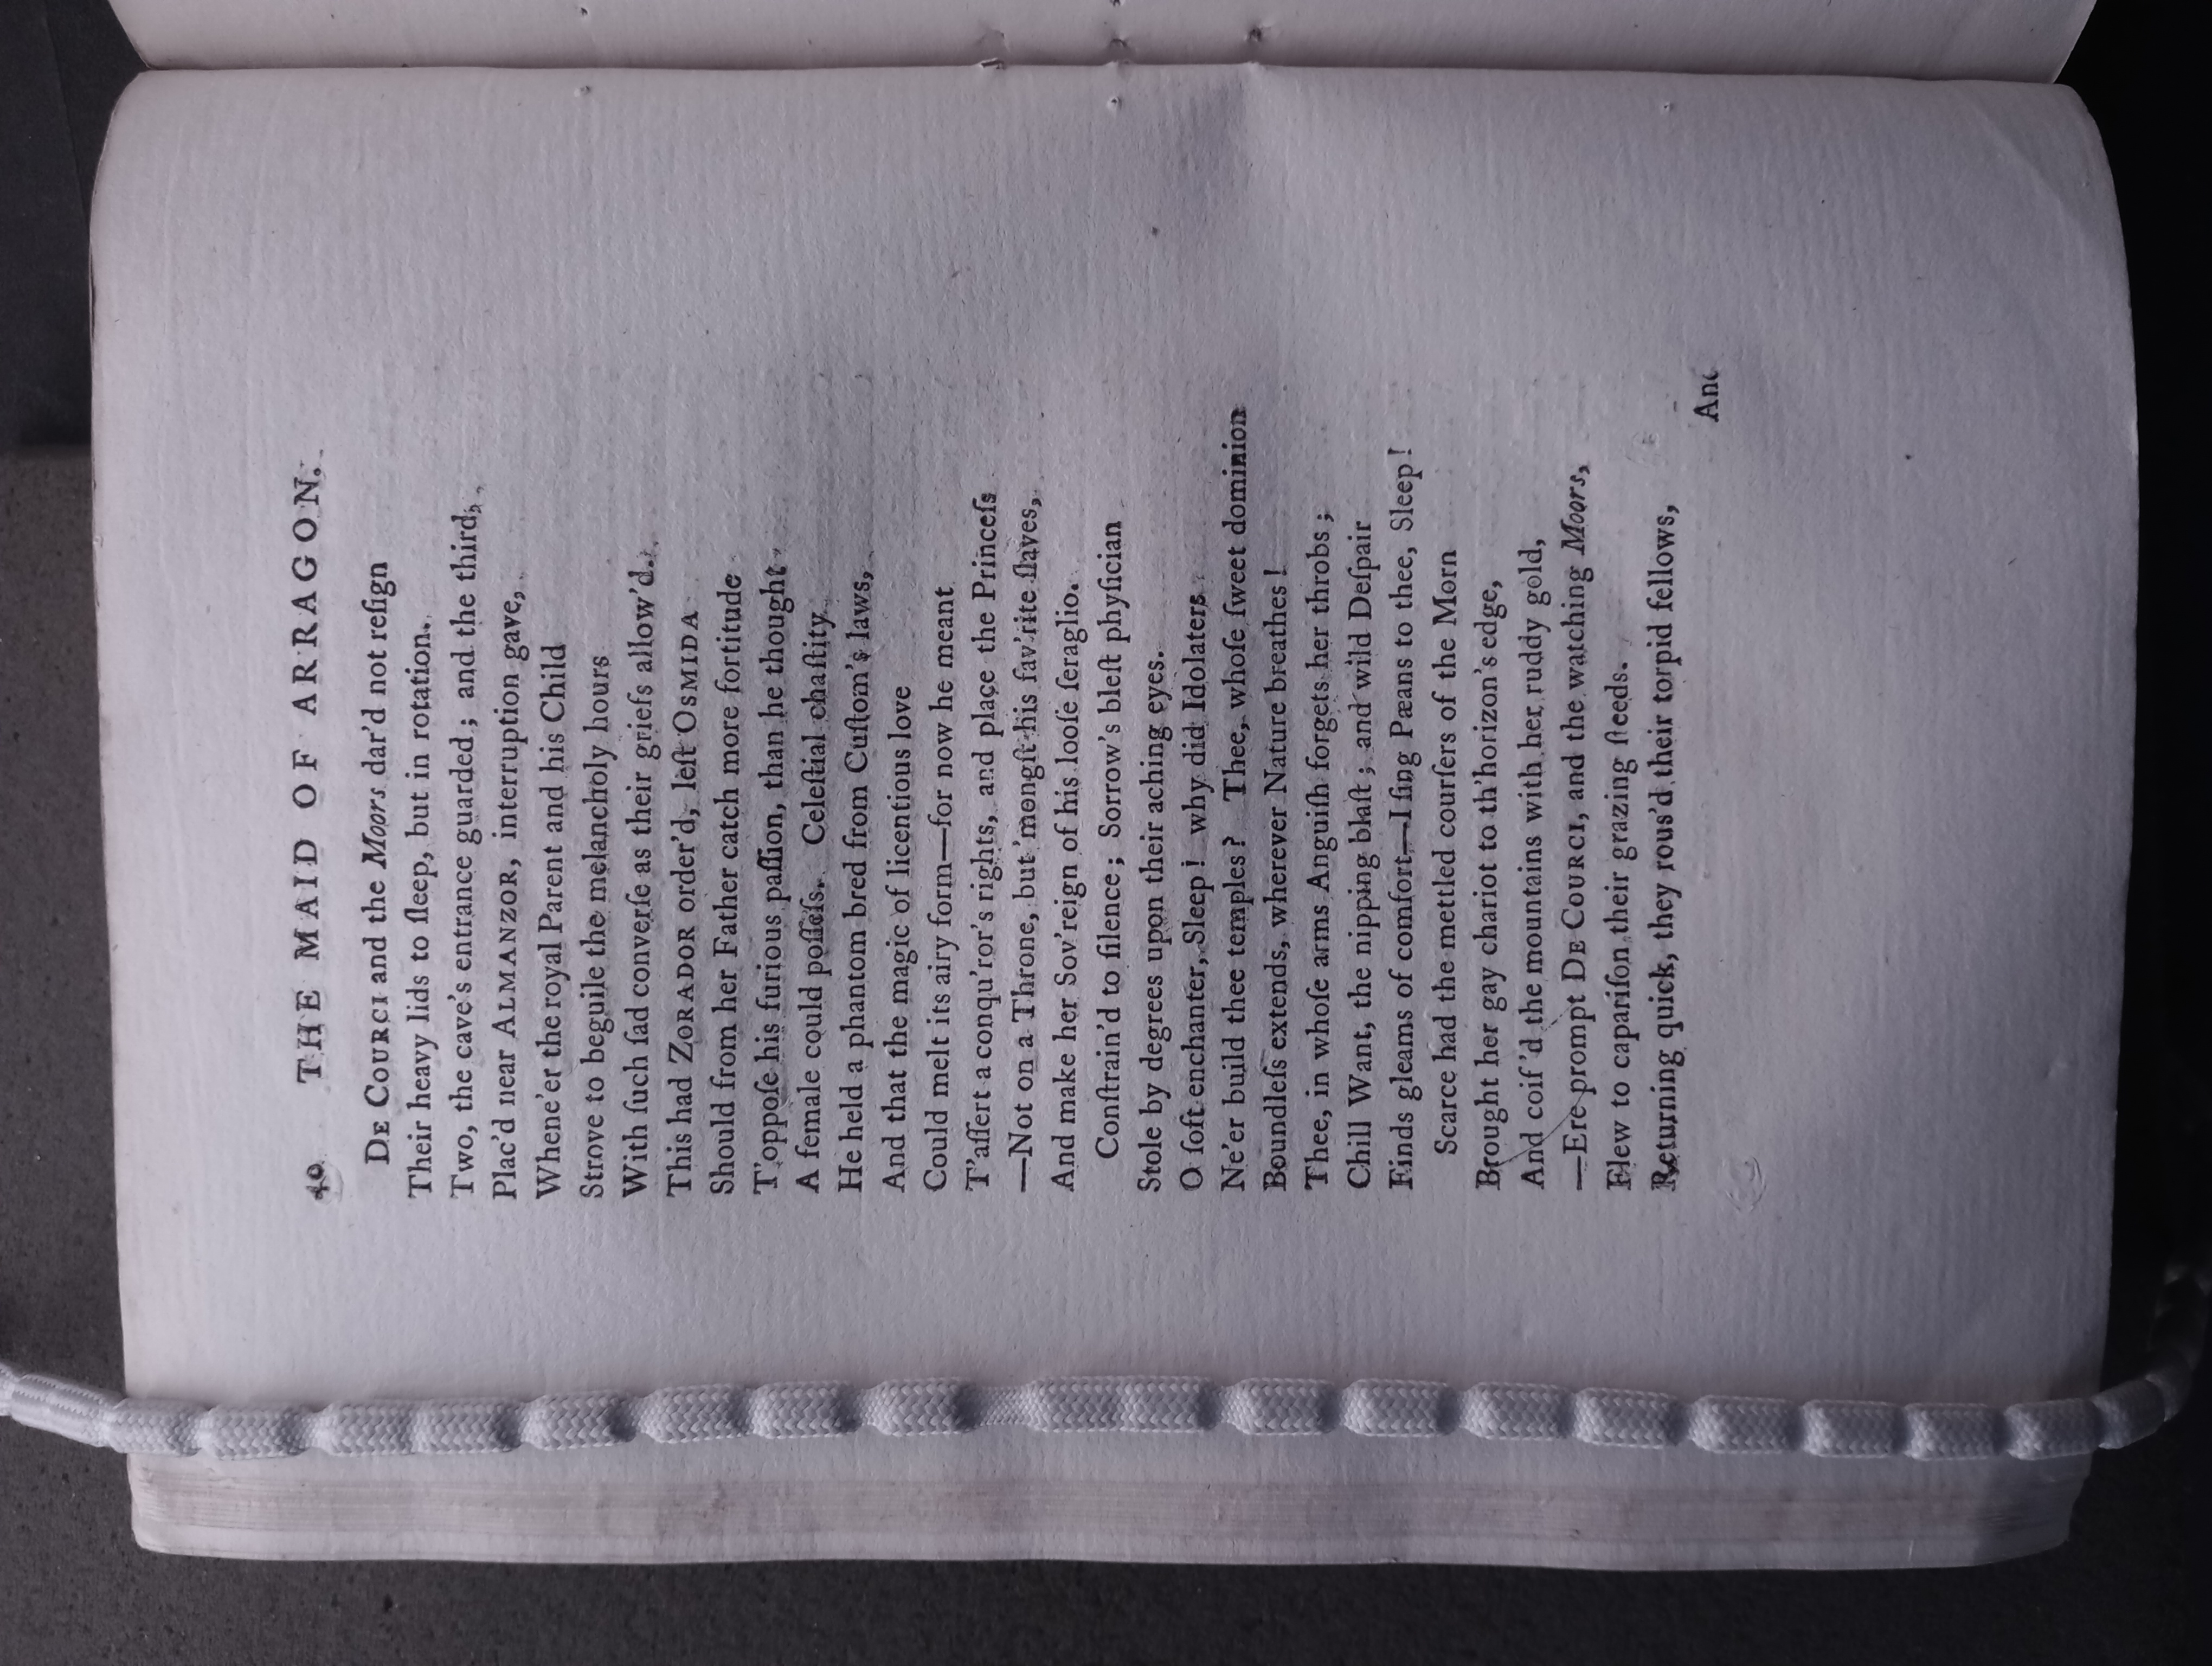 40 THE MAID OF ARRAGON.
DE COURCI and the Moors dar'd not reſign
Their heavy lids to ſleep, but in rotation.
Two, the cave's entrance guarded; and the third,
Plac'd near ALMANZOR, interruption gave,
Whene'er the royal Parent and his Child
Strove to beguile the melancholy hours
With ſuch ſad converſe as their griefs allow'd.
This had ZORADOR order'd, leſt OSMIDA
Should from her Father catch more fortitude
T'oppoſe his furious paſſion, than he thought
A female could poſſeſs. Celeſtial chaſtity
He held a phantom bred from Cuſtom's laws,
And that the magic of licentious love
Could melt its airy form—for now he meant
T'aſſert a conqu'ror's rights, and place the Princeſs
—Not on a Throne, but 'mongſt his fav'rite ſlaves,
And make her Sov'reign of his looſe ſeraglio.
Conſtrain'd to ſilence; Sorrow's bleſt phyſician
Stole by degrees upon their aching eyes.
O ſoft enchanter, Sleep! why did Idolaters
Ne'er build thee temples? Thee, whoſe ſweet dominion
Boundleſs extends, wherever Nature breathes!
Thee, in whoſe arms Anguiſh forgets her throbs;
Chill Want, the nipping blaſt; and wild Deſpair
Finds gleams of comfort,—I ſing Pæans to thee, Sleep!
Scarce had the mettled courſers of the Morn
Brought her gay chariot to th'horizon's edge,
And coif'd the mountains with her ruddy gold,
—Ere prompt DE COURCI, and the watching Moors,
Flew to capariſon their grazing ſteeds.
Returning quick, they rous'd their torpid fellows,
And